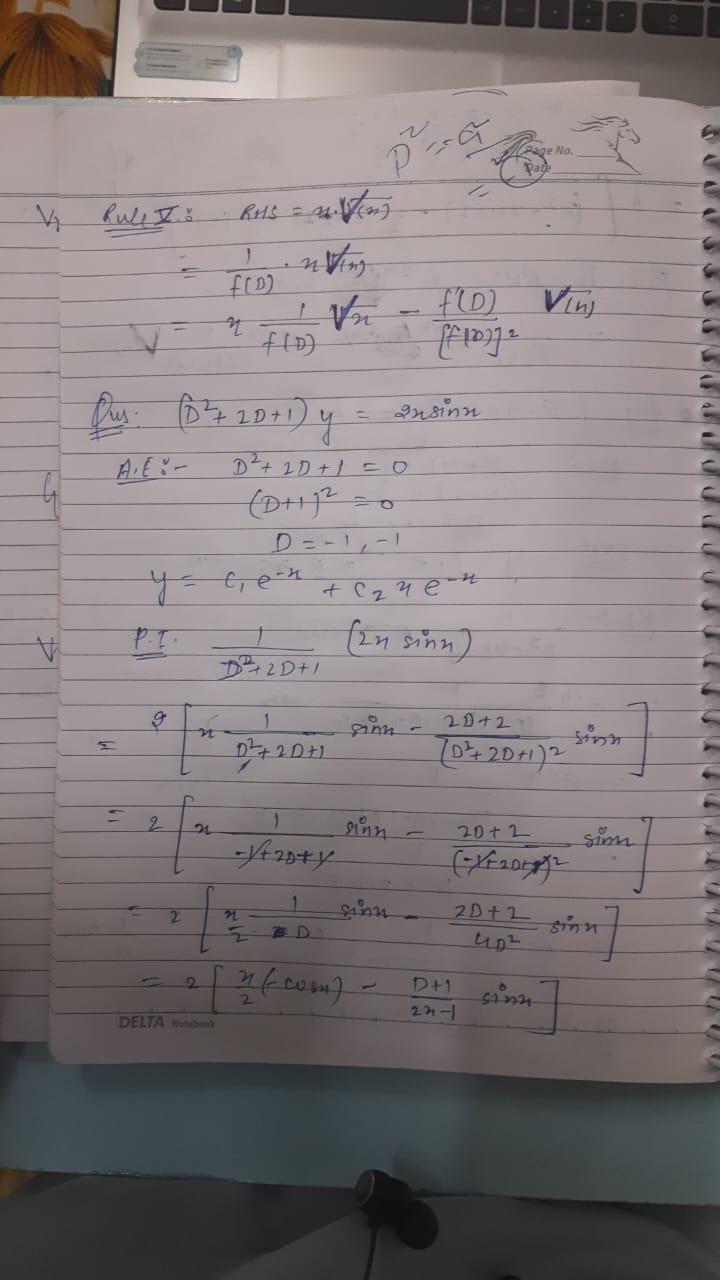 Page No.
Date
Rule V: RHS = x.V(x)
= 1/f(D) . x V(x)
= x 1/f(D) Vx - f'(D)/[f(D)]² V(x)
Qus. (D²+2D+1) y = 2x sinx
A.E:- D²+2D+1 = 0
(D+1)² = 0
D = -1, -1
y = c₁ e⁻ˣ + c₂ x e⁻ˣ
P.I. 1/D²+2D+1 (2x sinx)
= 2 [x 1/D²+2D+1 sinx - 2D+2/(D²+2D+1)² sinx]
= 2 [x 1/-1+2D+1 sinx - 2D+2/(-1+2D+1)² sinx]
= 2 [x/2 1/D sinx - 2D+2/4D² sinx]
= 2 [x/2 (-cosx) - D+1/2x-1 sinx]
DELTA Notebook